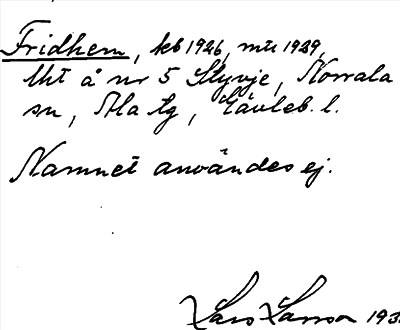 Fridhem, kb 1926, mtr 1929,
lht å nr 5 Styvje, Norrala
sn, Ala tg, Gävleb. l.
Namnet användes ej.
Lars Larsson 193